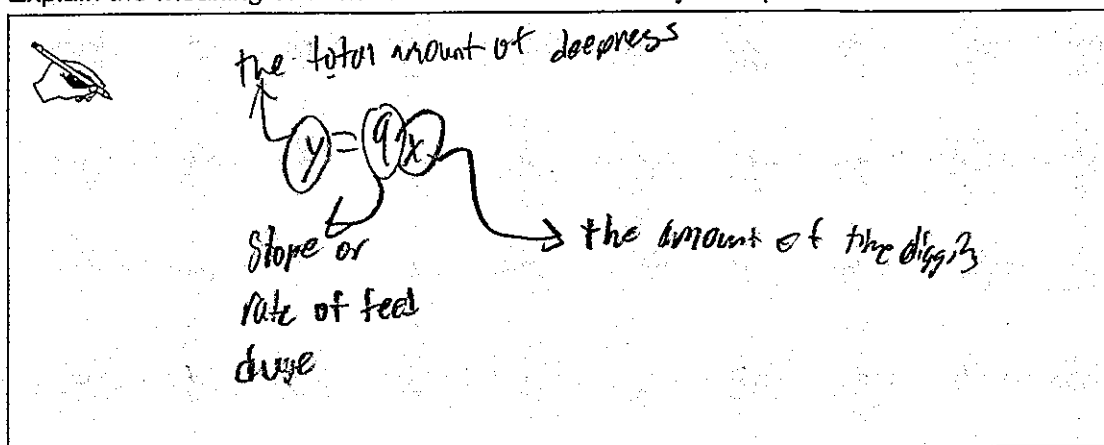 the total amount of deepness
y=9x
slope or
rate of feet
the amount of time digging